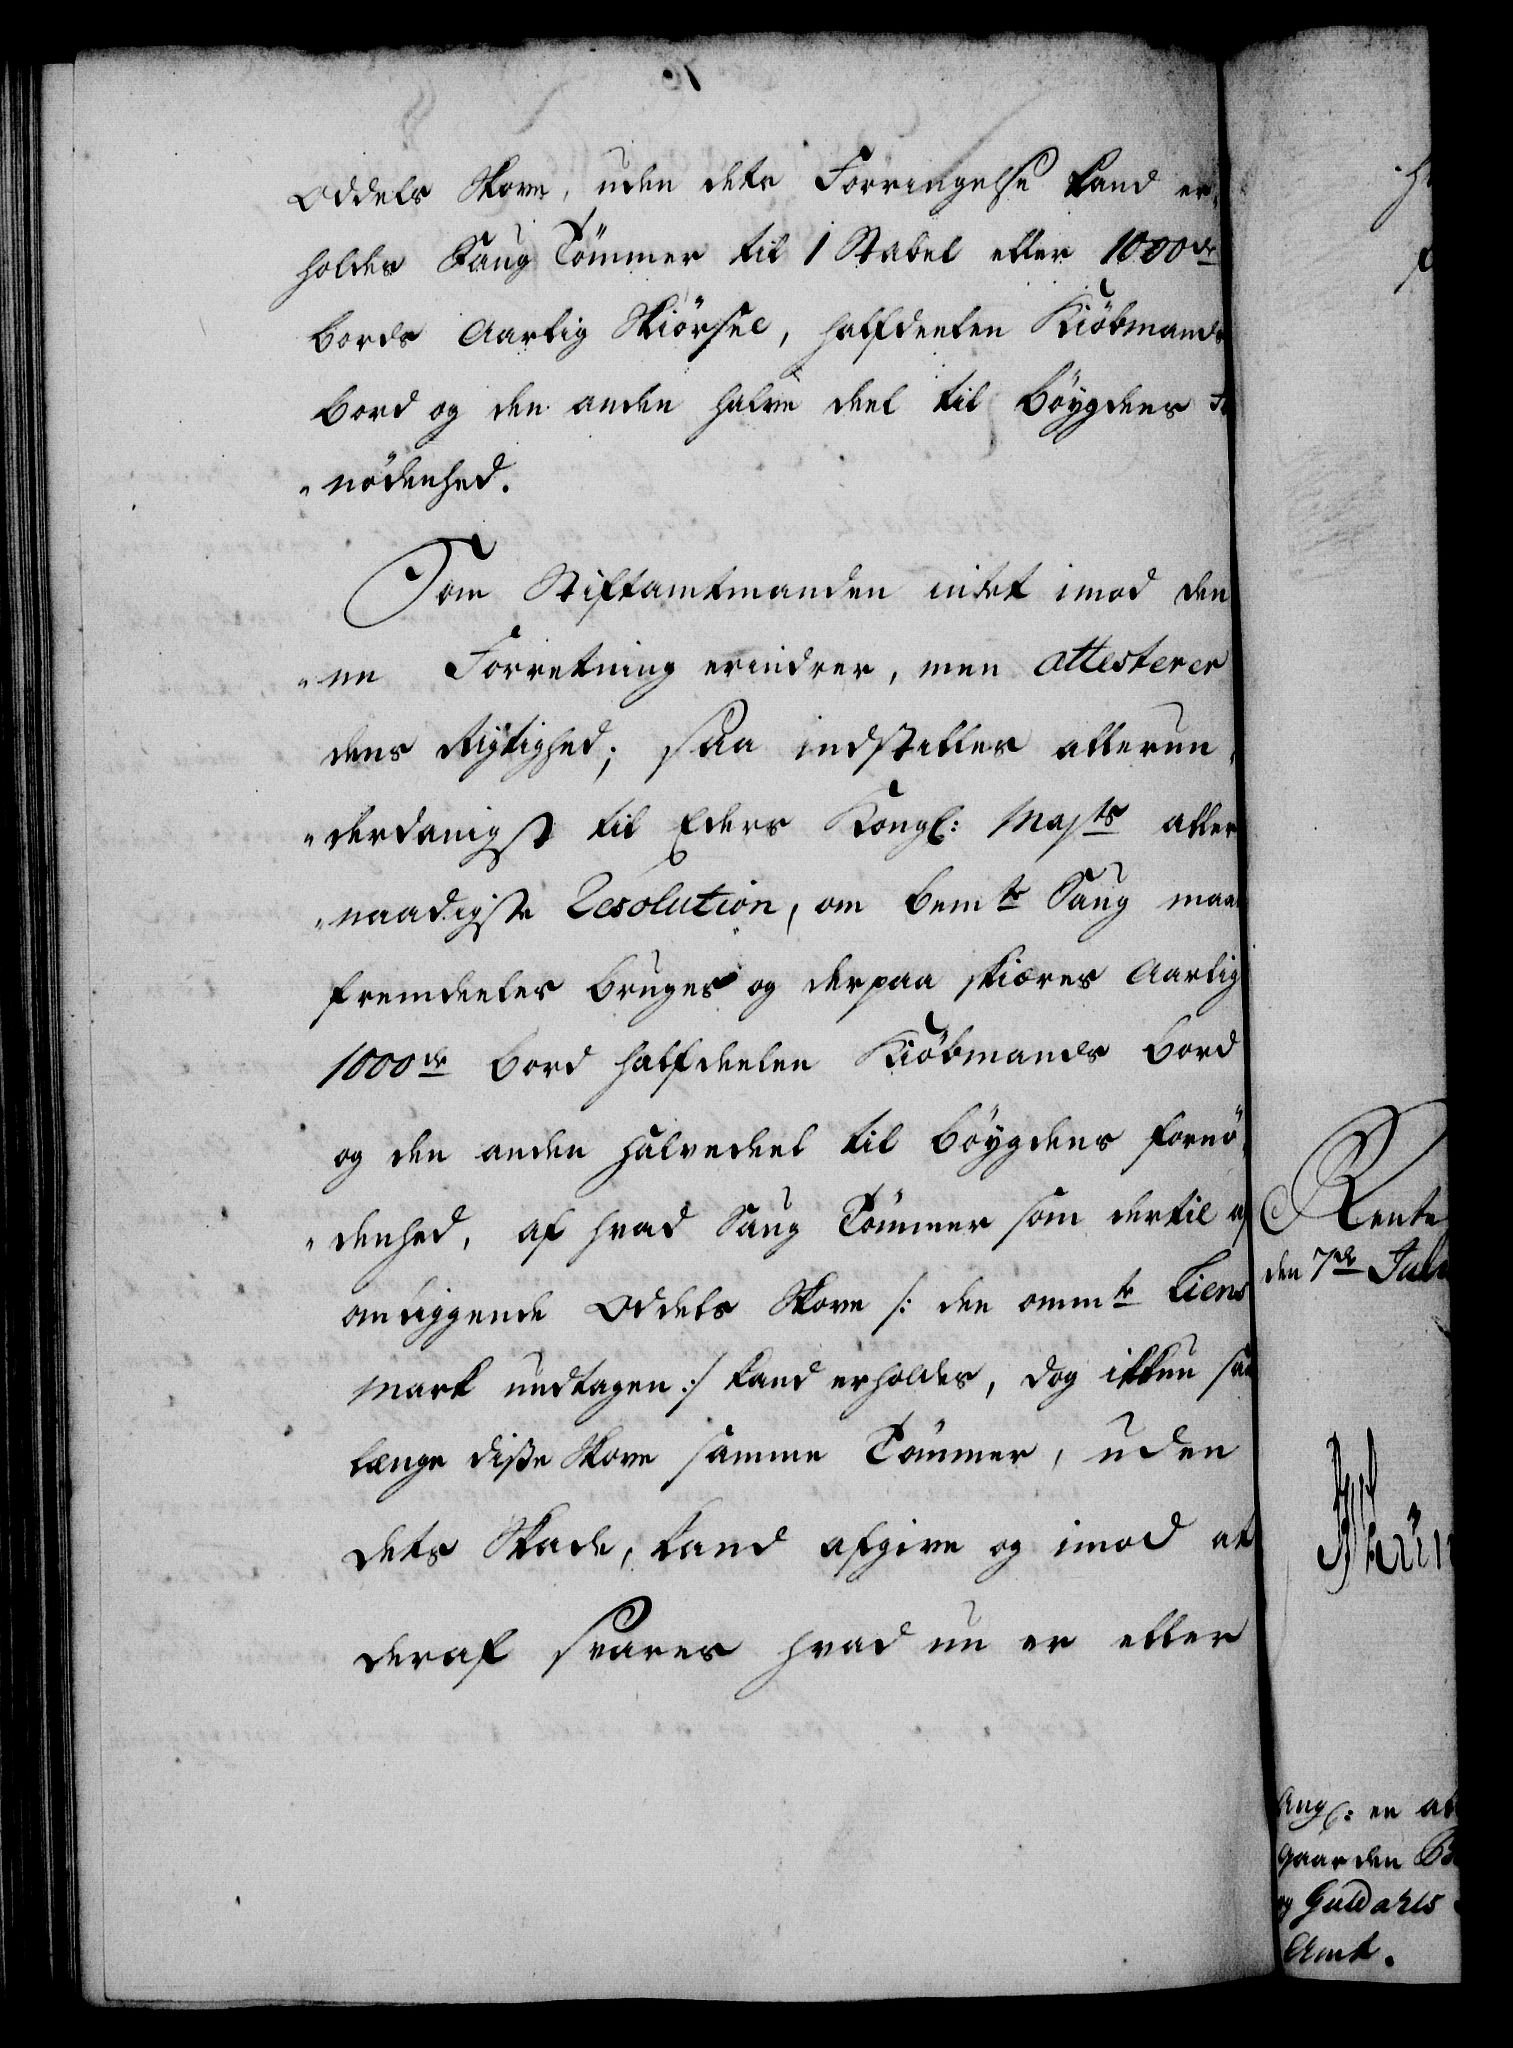 Oddels Skove, uden dets Forringelse kand er,
holdes Saug Tömmer til 1 Stabel eller 1000de
bords Aarlig Skiörsel, halfdeelen Kiöbmands
bord og den anden halve deel til Böygdens
"nödenhed.
Som Stiftamtmanden intet imod den
"ne Forretning erindrer, men attesterer
dens Rigtighed; saa indstilles allerun,
"derdanigst til Eders Kongl: Majts aller
"naadigste Resolution, om bemte Saug maa
fremdeeles bruges og derpaa skiæres Aarlig
1000de bord halfdeelen Kiöbmands bord
og den anden halvedeel til böygdens fornö,
"denhed, af hvad Saug Tömmer som dertil af
omliggende Oddels Skove /: den ommte Liens
Mark undtagen :/ kand erholdes, dog ikkun saa
længe disse Skove samme Tömmer, uden
dets Skade, kand afgive og imod at
deraf svares hvad nu er eller
Rente
den 7de Juli
Angl: en
gaarden
og Guldahls
Amt.